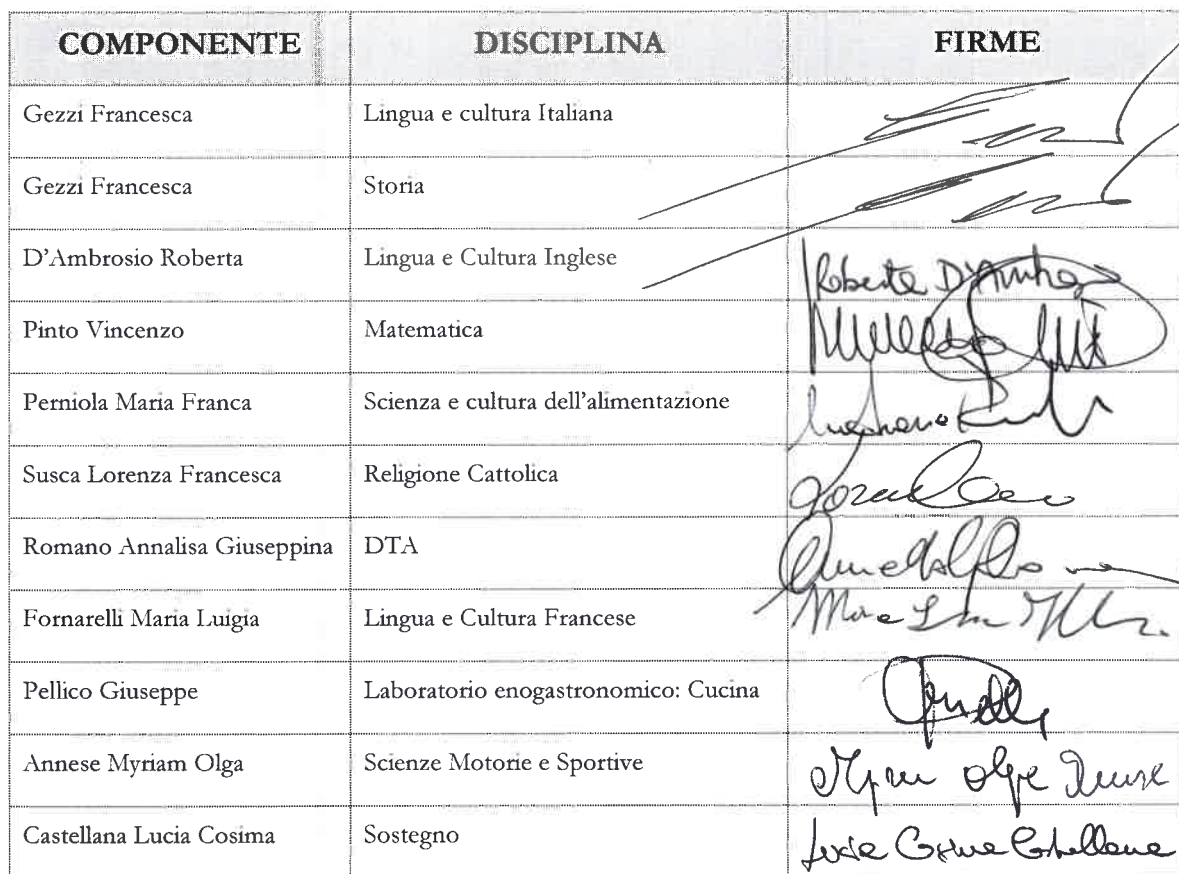 COMPONENTE DISCIPLINA FIRME
Gezzi Francesca Lingua e cultura Italiana
Gezzi Francesca Storia
D'Ambrosio Roberta Lingua e Cultura Inglese Roberta
Pinto Vincenzo Matematica
Perniola Maria Franca Scienza e cultura dell'alimentazione
Susca Lorenza Francesca Religione Cattolica
Romano Annalisa Giuseppina DTA
Fornarelli Maria Luigia Lingua e Cultura Francese
Pellico Giuseppe Laboratorio enogastronomico: Cucina
Annese Myriam Olga Scienze Motorie e Sportive
Castellana Lucia Cosima Sostegno Lucia Cosima Castellana